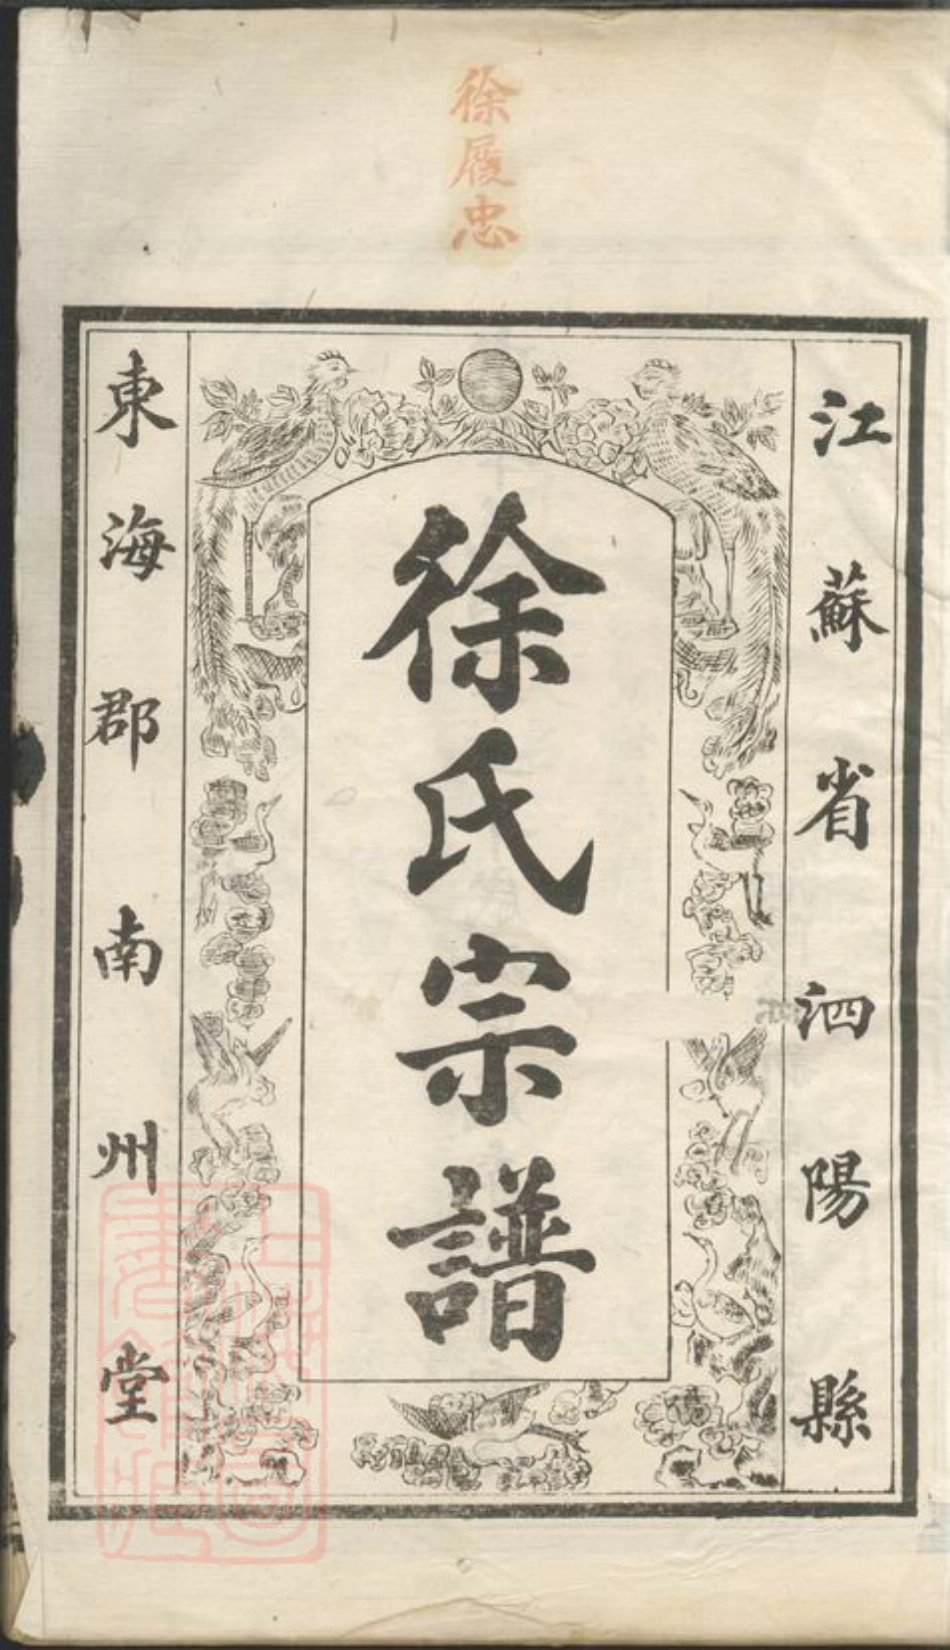 徐履忠
江蘇省泗陽縣
徐氏宗譜
東海郡南州堂